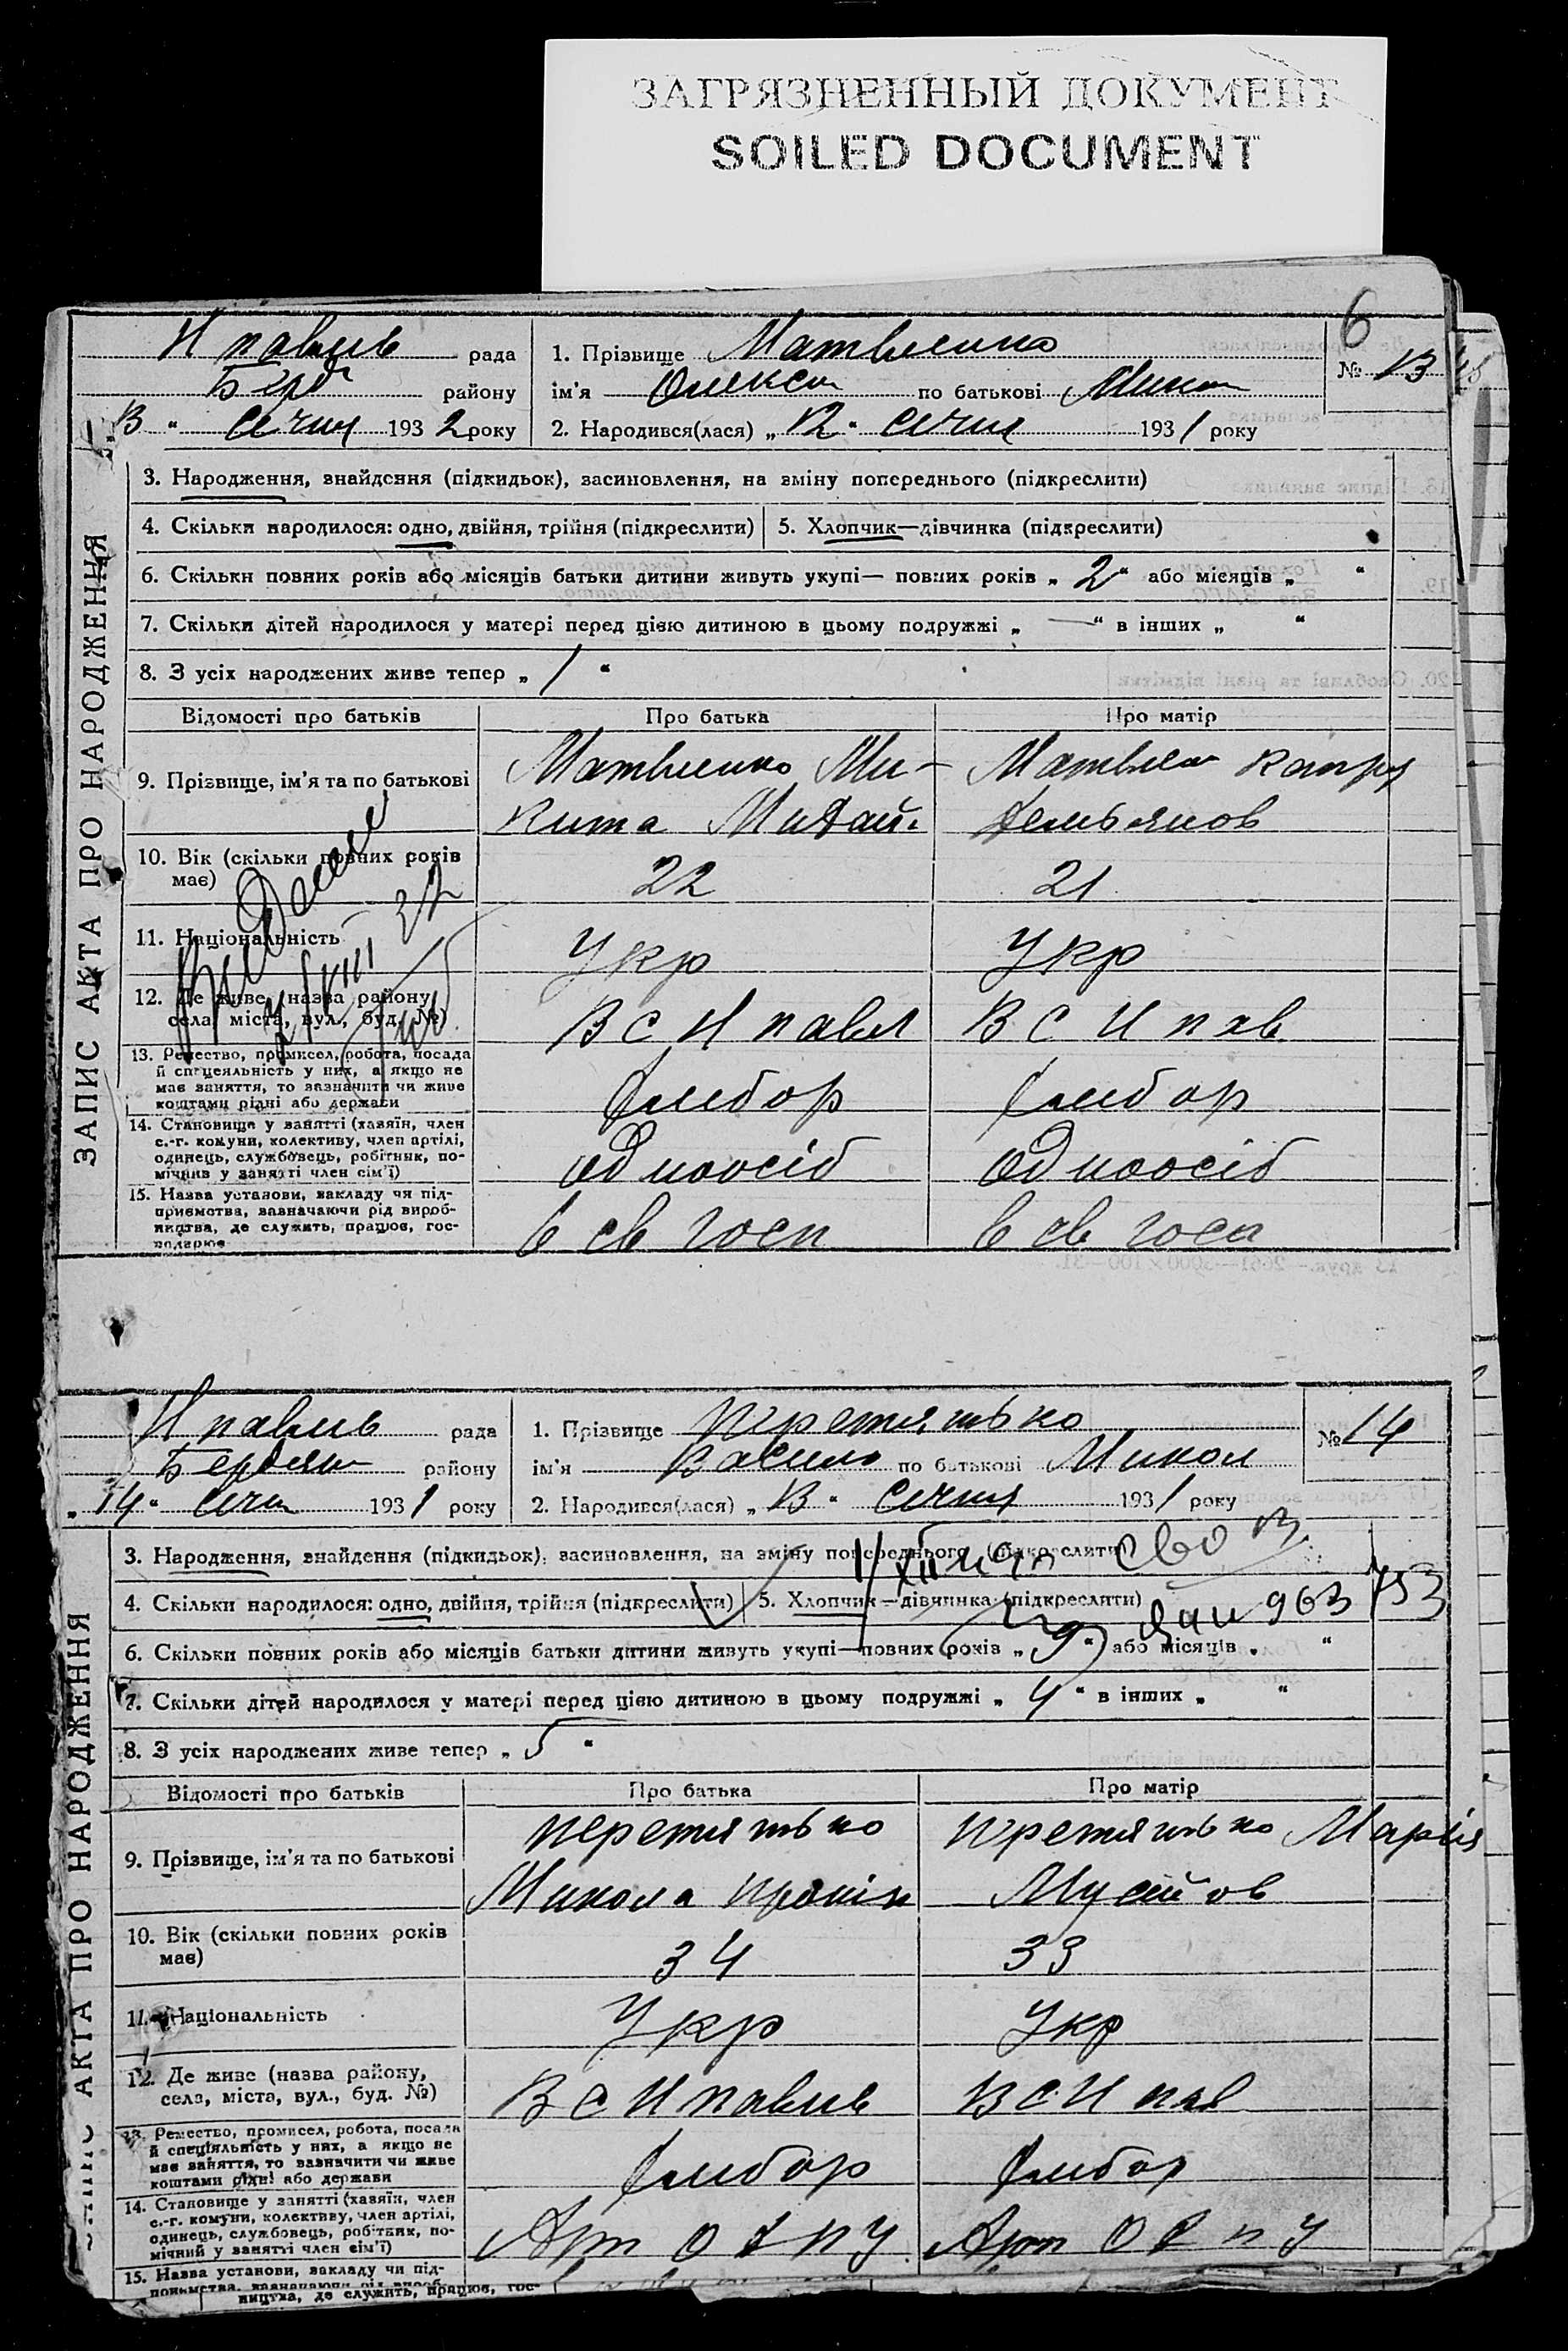 ЗАГРЯЗНЕННЫЙ ДОКУМЕНТ
SOILED DOCUMENT
6
ЗАПИС АКТА ПРО НАРОДЖЕННЯ
Н павлів рада
Берд району
„13“ Січня 1932 року
1. Прізвище Матвієнко
ім'я Олекса по батькові Мики
2. Народився(лася) „12“ Січня 1931 року
№ 13
3. Народження, знайдення (підкидьок), засиновлення, на зміну попереднього (підкреслити)
4. Скільки народилося: одно, двійня, трійня (підкреслити) 5. Хлопчик—дівчинка (підкреслити)
6. Скільки повних років або місяців батьки дитини живуть укупі— повних років „2“ або місяців „ “
7. Скільки дітей народилося у матері перед цією дитиною в цьому подружжі „—“ в інших „ “
8. З усіх народжених живе тепер „1“
Відомості про батьків Про батька Про матір
9. Прізвище, ім'я та по батькові
Матвієнко Ми-
кита Михай.
Матвієн
10. Вік (скільки повних років має) 22 21
11. Національність Укр Укр
12. Де живе (назва району, села, міста, вул., буд. №) В С Н павл В С Н пав
13. Ремество, промисел, робота, посада
й спеціяльність у них, а якщо не
має заняття, то зазначити чи живе
коштами рідні або держави
хлибор хлибор
14. Становище у занятті (хазяїн, член
с.-г. комуни, колективу, член артілі,
одинець, службовець, робітник, по-
мічний у занятті член сім'ї)
одноосіб одноосіб
15. Назва установи, закладу чи під-
приємства, зазначаючи рід вироб-
ництва, де служить, працює, гос-
подарює
в св госп в св госп
ЗАПИС АКТА ПРО НАРОДЖЕННЯ
Н павлів рада
Бердян району
„14“ січн 1931 року
1. Прізвище Перетятько
ім'я Василь по батькові Микол
2. Народився(лася) „13“ Січня 1931 року
№ 14
3. Народження, знайдення (підкидьок), засиновлення, на зміну попереднього (підкреслити)
4. Скільки народилося: одно, двійня, трійня (підкреслити) 5. Хлопчик—дівчинка (підкреслити)
6. Скільки повних років або місяців батьки дитини живуть укупі—повних років „9“ або місяців „ “
7. Скільки дітей народилося у матері перед цією дитиною в цьому подружжі „4“ в інших „ “
8. З усіх народжених живе тепер „5“
Відомості про батьків Про батька Про матір
9. Прізвище, ім'я та по батькові
перетятько
Микола
перетятько Марія
Мусійов
10. Вік (скільки повних років має) 34 33
11. Національність Укр Укр
12. Де живе (назва району, села, міста, вул., буд. №) В С Н павлів В С Н пав
13. Ремество, промисел, робота, посада
й спеціяльність у них, а якщо не
має заняття, то зазначити чи живе
коштами рідні або держави
хлибор хлибор
14. Становище у занятті (хазяїн, член
с.-г. комуни, колективу, член артілі,
одинець, службовець, робітник, по-
мічний у занятті член сім'ї)
Арт Арт
15. Назва установи, закладу чи під-
ництва, де служить, працює, гос-